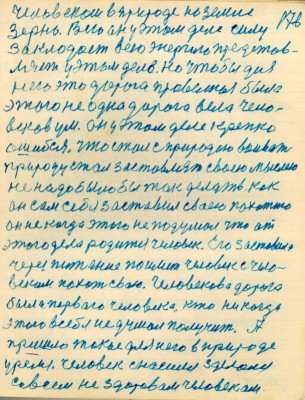 человеком в природе на земле
зерно. Его он у этом деле силу
закладает всего энергию представ-
ляет у этом деле. Но чтобы для
него это дорога провестая была
этого не одна дорога вела чело-
века ум. Он у этом деле крепко
ошибся, что стал с природою воювать
природу стал заставлять своею мыслию
не надо было бы так делать. Как
он сам себя заставил своею похотию
он не когда этого не подумал что от
этого дела родится человек. Его заставило
через питание пошлет человек с чело-
веким похот свою. Человекова дорога
была первого человека, кто никогда
этого в себя не думал получит. А
пришло такое для него в природе
время, человек с населил зделал
совсем не здоровам человекам.
176